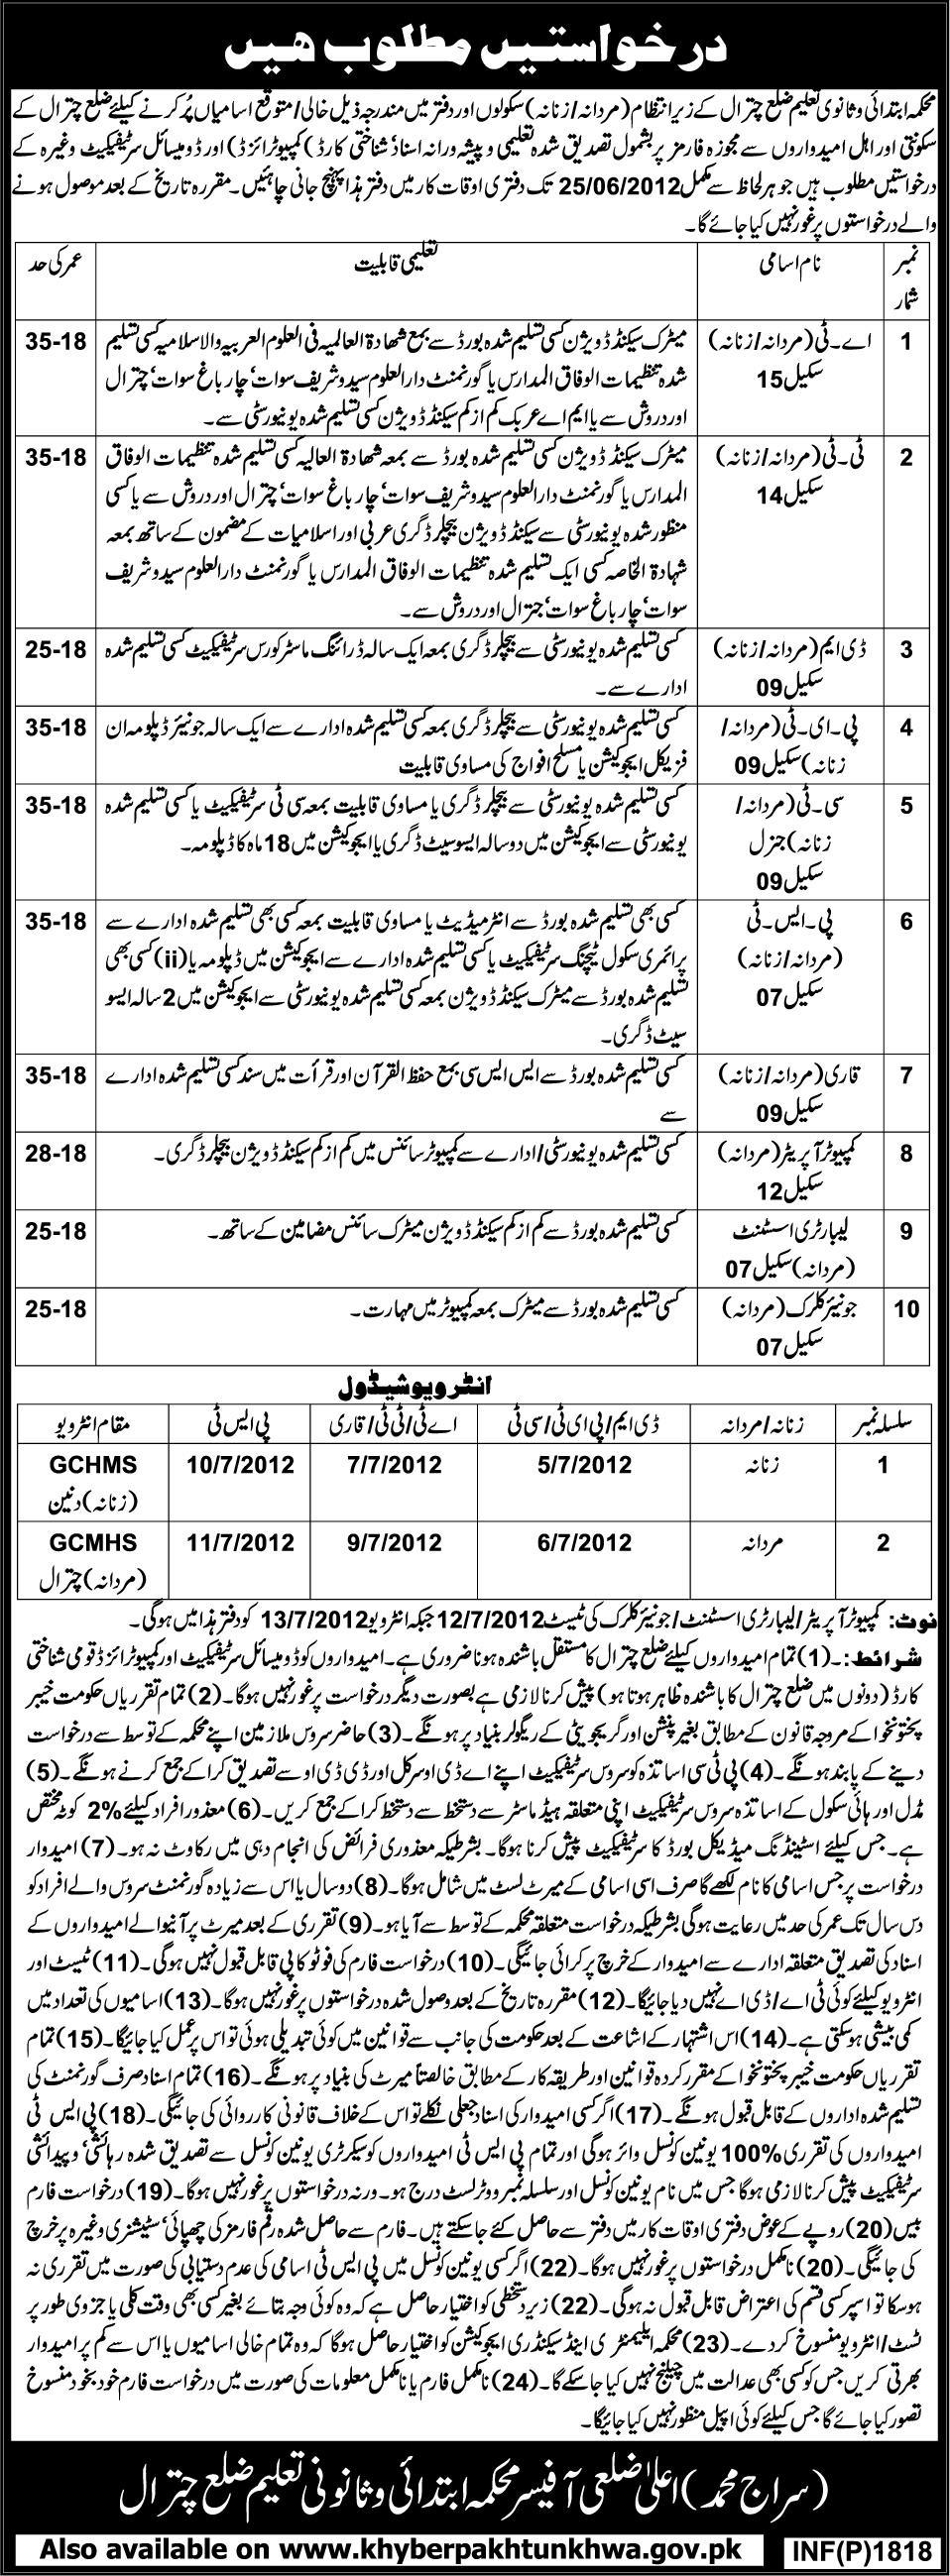 درخواستیں مطلوب ھیں
محکمہ ابتدائی وثانوی تعلیم ضلع چترال کے زیرانتظام (مردانہ/زنانہ) سکولوں اور دفتر میں مندرجہ ذیل خالی/متوقع اسامیاں پُر کرنے کیلئے ضلع چترال کے
سکونتی اور اہل امیدواروں سے مجوزہ فارمز پر بشمول تصدیق شدہ تعلیمی وپیشہ ورانہ اسناد شناختی کارڈ (کمپیوٹرائزڈ) اور ڈومیسائل سرٹیفکیٹ وغیرہ کے
درخواستیں مطلوب ہیں جو ہر لحاظ سے مکمل 25/06/2012 تک دفتری اوقات کار میں دفتر ہذا پہنچ جانی چاہئیں۔ مقررہ تاریخ کے بعد موصول ہونے
والے درخواستوں پر غور نہیں کیا جائے گا۔
نمبر شمار | نام اسامی | تعلیمی قابلیت | عمر کی حد
1 | اے۔ٹی (مردانہ/زنانہ) | میٹرک سیکنڈ ڈویژن کسی تسلیم شدہ بورڈ سے بمع شھادۃ العالمیہ فی العلوم العربیہ والاسلامیہ کسی تسلیم | 35-18
سکیل 15 | شدہ تنظیمات الوفاق المدارس یا گورنمنٹ دارالعلوم سیدو شریف سوات، چارباغ سوات، چترال
اور دروش سے یا ایم اے عربک کم از کم سیکنڈ ڈویژن کسی تسلیم شدہ یونیورسٹی سے۔
2 | ٹی۔ٹی (مردانہ/زنانہ) | میٹرک سیکنڈ ڈویژن کسی تسلیم شدہ بورڈ سے بمعہ شھادۃ العالیہ کسی تسلیم شدہ تنظیمات الوفاق | 35-18
سکیل 14 | المدارس یا گورنمنٹ دارالعلوم سیدو شریف سوات، چارباغ سوات، چترال اور دروش سے یا کسی
منظور شدہ یونیورسٹی سے سیکنڈ ڈویژن بیچلر ڈگری عربی اور اسلامیات کے مضمون کے ساتھ بمعہ
شہادۃ الخاصہ کسی ایک تسلیم شدہ تنظیمات الوفاق المدارس یا گورنمنٹ دارالعلوم سیدو شریف
سوات، چارباغ سوات، چترال اور دروش سے۔
3 | ڈی ایم (مردانہ/زنانہ) | کسی تسلیم شدہ یونیورسٹی سے بیچلر ڈگری بمعہ ایک سالہ ڈرائنگ ماسٹر کورس سرٹیفکیٹ کسی تسلیم شدہ | 25-18
سکیل 09 | ادارے سے۔
4 | پی۔ای۔ٹی (مردانہ/ | کسی تسلیم شدہ یونیورسٹی سے بیچلر ڈگری بمعہ کسی تسلیم شدہ ادارے سے ایک سالہ جونیئر ڈپلومہ ان | 35-18
زنانہ) سکیل 09 | فزیکل ایجوکیشن یا مسلح افواج کی مساوی قابلیت
5 | سی۔ٹی (مردانہ/ | کسی تسلیم شدہ یونیورسٹی سے بیچلر ڈگری یا مساوی قابلیت بمعہ سی ٹی سرٹیفکیٹ یا کسی تسلیم شدہ | 35-18
زنانہ) جنرل | یونیورسٹی سے ایجوکیشن میں دو سالہ ایسوسیٹ ڈگری یا ایجوکیشن میں 18 ماہ کا ڈپلومہ۔
سکیل 09
6 | پی۔ایس۔ٹی | کسی بھی تسلیم شدہ بورڈ سے انٹرمیڈیٹ یا مساوی قابلیت بمعہ کسی بھی تسلیم شدہ ادارے سے | 35-18
(مردانہ/زنانہ) | پرائمری سکول ٹیچنگ سرٹیفکیٹ یا کسی تسلیم شدہ ادارے سے ایجوکیشن میں ڈپلومہ یا (ii) کسی بھی
سکیل 07 | تسلیم شدہ بورڈ سے میٹرک سیکنڈ ڈویژن بمعہ کسی تسلیم شدہ یونیورسٹی سے ایجوکیشن میں 2 سالہ ایسو
سیٹ ڈگری۔
7 | قاری (مردانہ/زنانہ) | کسی تسلیم شدہ بورڈ سے ایس ایس سی بمع حفظ القرآن اور قرأت میں سند کسی تسلیم شدہ ادارے | 35-18
سکیل 09 | سے
8 | کمپیوٹر آپریٹر (مردانہ) | کسی تسلیم شدہ یونیورسٹی/ادارے سے کمپیوٹر سائنس میں کم از کم سیکنڈ ڈویژن بیچلر ڈگری۔ | 28-18
سکیل 12
9 | لیبارٹری اسسٹنٹ | کسی تسلیم شدہ بورڈ سے کم از کم سیکنڈ ڈویژن میٹرک سائنس مضامین کے ساتھ۔ | 25-18
(مردانہ) سکیل 07
10 | جونیئر کلرک (مردانہ) | کسی تسلیم شدہ بورڈ سے میٹرک بمعہ کمپیوٹر میں مہارت۔ | 25-18
سکیل 07
انٹرویو شیڈول
سلسلہ نمبر | زنانہ/مردانہ | ڈی ایم/پی ای ٹی/سی ٹی | اے ٹی/ٹی ٹی/قاری | پی ایس ٹی | مقام انٹرویو
1 | زنانہ | 5/7/2012 | 7/7/2012 | 10/7/2012 | GCHMS
(زنانہ) دنین
2 | مردانہ | 6/7/2012 | 9/7/2012 | 11/7/2012 | GCMHS
(مردانہ) چترال
نوٹ: کمپیوٹر آپریٹر/لیبارٹری اسسٹنٹ/جونیئر کلرک کی ٹیسٹ 12/7/2012 جبکہ انٹرویو 13/7/2012 کو دفتر ہذا میں ہوگی۔
شرائط:۔ (1) تمام امیدواروں کیلئے ضلع چترال کا مستقل باشندہ ہونا ضروری ہے۔ امیدواروں کو ڈومیسائل سرٹیفکیٹ اور کمپیوٹرائزڈ قومی شناختی
کارڈ (دونوں میں ضلع چترال کا باشندہ ظاہر ہوتا ہو) پیش کرنا لازمی ہے بصورت دیگر درخواست پر غور نہیں ہوگا۔ (2) تمام تقرریاں حکومت خیبر
پختونخوا کے مروجہ قانون کے مطابق بغیر پنشن اور گریجویٹی کے ریگولر بنیاد پر ہونگے۔ (3) حاضر سروس ملازمین اپنے محکمہ کے توسط سے درخواست
دینے کے پابند ہونگے۔ (4) پی ٹی سی اساتذہ کو سروس سرٹیفکیٹ اپنے اے ڈی او سرکل اور ڈی ڈی او سے تصدیق کرا کے جمع کرنے ہونگے۔ (5)
مڈل اور ہائی سکول کے اساتذہ سروس سرٹیفکیٹ اپنی متعلقہ ہیڈ ماسٹر سے دستخط سے دستخط کرا کے جمع کریں۔ (6) معذور افراد کیلئے 2% کوٹہ مختص
ہے۔ جس کیلئے اسٹینڈنگ میڈیکل بورڈ کا سرٹیفکیٹ پیش کرنا ہوگا۔ بشرطیکہ معذوری فرائض کی انجام دہی میں رکاوٹ نہ ہو۔ (7) امیدوار
درخواست پر جس اسامی کا نام لکھے گا صرف اسی اسامی کے میرٹ لسٹ میں شامل ہوگا۔ (8) دو سال یا اس سے زیادہ گورنمنٹ سروس والے افراد کو
دس سال تک عمر کی حد میں رعایت ہوگی بشرطیکہ درخواست متعلقہ محکمہ کے توسط سے آیا ہو۔ (9) تقرری کے بعد میرٹ پر آنیوالے امیدواروں کے
اسناد کی تصدیق متعلقہ ادارے سے امیدوار کے خرچ پر کرائی جائیگی۔ (10) درخواست فارم کی فوٹو کاپی قابل قبول نہیں ہوگی۔ (11) ٹیسٹ اور
انٹرویو کیلئے کوئی ٹی اے/ڈی اے نہیں دیا جائیگا۔ (12) مقررہ تاریخ کے بعد وصول شدہ درخواستوں پر غور نہیں ہوگا۔ (13) اسامیوں کی تعداد میں
کمی بیشی ہوسکتی ہے۔ (14) اس اشتہار کے اشاعت کے بعد حکومت کی جانب سے قوانین میں کوئی تبدیلی ہوئی تو اس پر عمل کیا جائیگا۔ (15) تمام
تقرریاں حکومت خیبر پختونخوا کے مقرر کردہ قوانین اور طریقہ کار کے مطابق خالصتاً میرٹ کی بنیاد پر ہونگے۔ (16) تمام اسناد صرف گورنمنٹ کی
تسلیم شدہ اداروں کے قابل قبول ہونگے۔ (17) اگر کسی امیدوار کی اسناد جعلی نکلے تو اس کے خلاف قانونی کارروائی کی جائیگی۔ (18) پی ایس ٹی
امیدواروں کی تقرری 100% یونین کونسل وائز ہوگی اور تمام پی ایس ٹی امیدواروں کو سیکرٹری یونین کونسل سے تصدیق شدہ رہائشی و پیدائشی
سرٹیفکیٹ پیش کرنا لازمی ہوگا جس میں نام یونین کونسل اور سلسلہ نمبر ووٹر لسٹ درج ہو۔ ورنہ درخواستوں پر غور نہیں ہوگا۔ (19) درخواست فارم
بیس (20) روپے کے عوض دفتری اوقات کار میں دفتر سے حاصل کئے جاسکتے ہیں۔ فارم سے حاصل شدہ رقم فارمز کی چھپائی، سٹیشنری وغیرہ پر خرچ
کی جائیگی۔ (20) نامکمل درخواستوں پر غور نہیں ہوگا۔ (22) اگر کسی یونین کونسل میں پی ایس ٹی اسامی کی عدم دستیابی کی صورت میں تقرری نہ
ہوسکا تو اسپر کسی قسم کی اعتراض قابل قبول نہ ہوگی۔ (22) زیر دستخطی کو اختیار حاصل ہے کہ وہ کوئی وجہ بتائے بغیر کسی بھی وقت کلی یا جزوی طور پر
ٹسٹ/انٹرویو منسوخ کردے۔ (23) محکمہ ایلیمنٹری اینڈ سیکنڈری ایجوکیشن کو اختیار حاصل ہوگا کہ وہ تمام خالی اسامیوں یا اس سے کم پر امیدوار
بھرتی کریں جس کو کسی بھی عدالت میں چیلنج نہیں کیا جاسکے گا۔ (24) نامکمل فارم یا نامکمل معلومات کی صورت میں درخواست فارم خودبخود منسوخ
تصور کیا جائے گا جس کیلئے کوئی اپیل منظور نہیں کیا جائیگا۔
(سراج محمد) اعلیٰ ضلعی آفیسر محکمہ ابتدائی وثانوی تعلیم ضلع چترال
Also available on www.khyberpakhtunkhwa.gov.pk
INF(P)1818